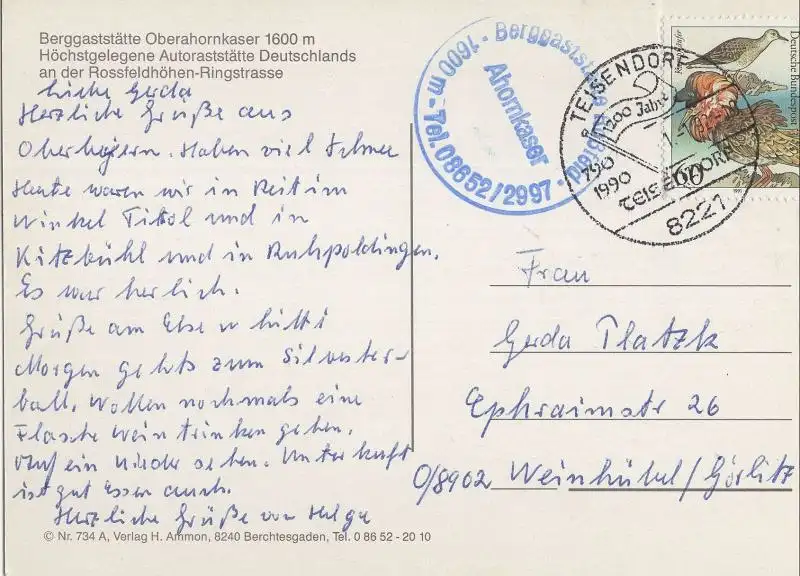 Berggaststätte Oberahornkaser 1600 m
Höchstgelegene Autoraststätte Deutschlands
an der Rossfeldhöhen-Ringstrasse
Liebe Gerda
Herzliche Grüße aus
Oberbayern. Haben viel Schnee
Heute waren wir in Reit im
Winkel Tirol und in
Kitzbühl und in Ruhpoldingen.
Es war herlich.
Grüße am Else u
Morgen gehts zum Silvester-
ball. Wollen nochmals eine
Flasche Wein trinken gehen.
Auf ein wieder sehen. Unterkuft
ist gut Essen auch.
Herzliche Grüße von Helga
© Nr. 734 A, Verlag H. Ammon, 8240 Berchtesgaden, Tel. 0 86 52 - 20 10
1600 m - Berggaststätte
Ahornkaser
Tel. 08652/2997
TEISENDORF
1200 Jahre
790
1990
TEISENDORF
8221
Deutsche Bundespost
60
1991
Frau
Gerda Platzk
Ephraimstr 26
O/8902 Weinhübel/Görlitz